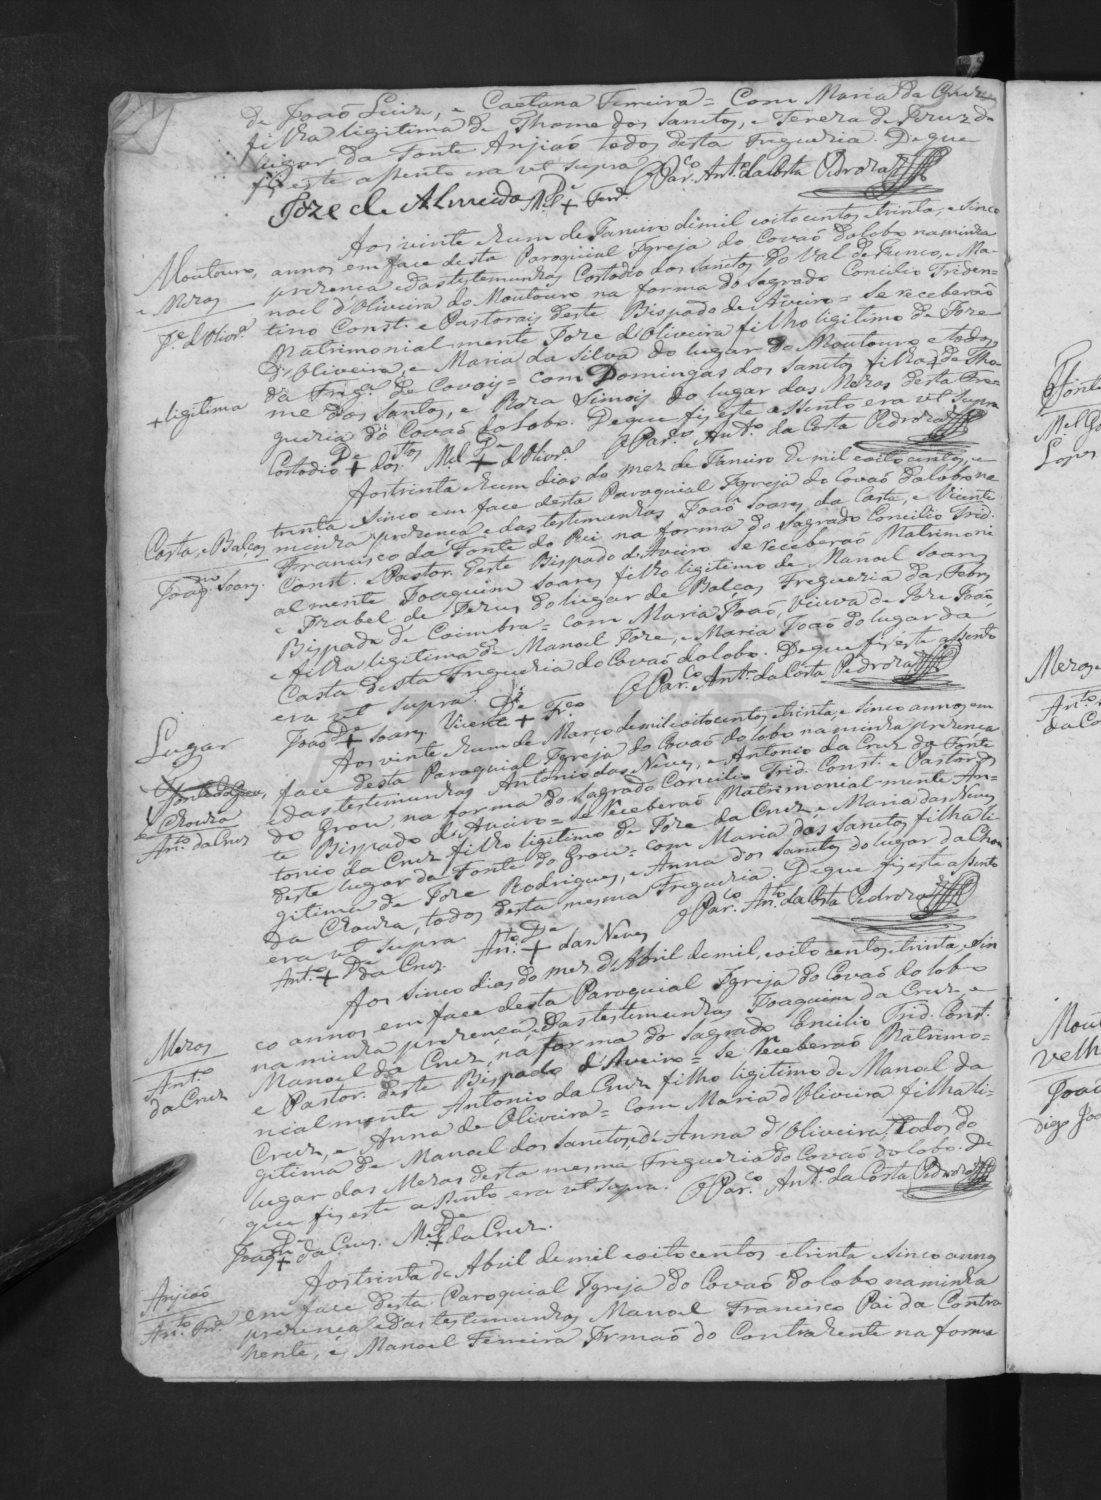 de Joaõ Luiz, e Caetana Ferreira = Com Maria da Cruz
filha ligitima de Thome dos Santos, e Tereza de Jezus do
lugar da Fonte Anjiaõ todos desta Fregueria. De que
fiz este assento era vt supra
O Par.co Ant.o da Costa Pedroza
Joze de Almeida M.el + Ferr.
Aos vinte e hum de Janeiro de mil e oito centos e trinta, e sinco
Moutouro, annos em face desta Paroquial Igreja do Covaõ do lobo na minha
e Mezas prezença e das testemunhas Costodio dos Santos do Val de Junco, e Ma-
noel d'Oliveira do Moutouro na forma do Sagrado Concilio Triden-
J.e d'Olivr.a tino Const. e Pastorais deste Bispado de Aveiro = Se receberaõ
Matrimonial-mente Joze d'Oliveira filho ligitimo de Joze
d'Oliveira, e Maria da Silva do lugar do Moutouro e todos
da Freg.a de Covoẽs = com Domingas dos Santos filha + de Tho-
+ ligitima
me dos Santos, e Roza Simoiz do lugar das Mezas desta Fre-
gueria do Covaõ do lobo. De que fiz este assento era vt supra
O Par.co Ant.o da Costa Pedroza
Costodio + dos S.tos M.el + d'Olivr.a
Aos trinta e hum dias do mez de Janeiro de mil e oito centos, e
trinta e sinco em face desta Paroquial Igreja do Covaõ do lobo na
Casta, e Balças minha prezença e das testemunhas Joaõ Soares da Casta, e Vicente
Francisco da Fonte do Rei, na forma do Sagrado Concilio Trid.
Joaq.m Soares. Const. e Pastor. deste Bispado de Aveiro se receberaõ Matrimoni
almente Joaquim Soares filho ligitimo de Manoel Soares
e Izabel de Jezus do lugar de Balças Fregueria das Febres
Bispado de Coimbra = com Maria Joaõ, Viuva de Joze Joaõ,
e filha ligitima de Manoel Joze, e Maria Joaõ do lugar da
Casta desta Fregueria do Covaõ do lobo. De que fiz este assento
era vt supra.
O Par.co Ant.o da Costa Pedroza
Joaõ + Soares Vicente + Fr.co
Lugar
Aos vinte e hum de Março de mil e oito centos e trinta, e sinco annos em
face desta Paroquial Igreja do Covaõ do lobo na minha prezença
e das testemunhas Antonio das Neves, e Antonio da Cruz da Fonte
e Choura do Grou, na forma do Sagrado Concilio Trid. Const. e Pastor. des
Ant.o da Cruz te Bispado de Aveiro = se receberaõ Matrimonial-mente An-
tonio da Cruz filho ligitimo de Joze da Cruz, e Maria das Neves
deste lugar da Fonte do Grou = com Maria dos Santos filha li-
gitima de Joze Rodrigues, e Anna dos Santos do lugar da Chou
da Choura, todos desta mesma Fregueria. De que fiz este assento
era vt supra
O Par.co Ant.o da Costa Pedroza
Ant.o + da Cruz. Ant.o + das Neves
Aos sinco dias do mez d'Abril de mil, e oito centos, e trinta e sin
co annos em face desta Paroquial Igreja do Covaõ do lobo
Mezas na minha prezença, e das testemunhas Joaquim da Cruz, e
Ant.o Manoel da Cruz, na forma do Sagrado Concilio Trid. Const.
da Cruz e Pastor. deste Bispado d'Aveiro = Se receberaõ Matrimo=
nialmente Antonio da Cruz filho ligitimo de Manoel da
Cruz, e Anna de Oliveira = com Maria d'Oliveira filha li-
gitima de Manoel dos Santos, e de Anna d'Oliveira, todos do
lugar das Mezas desta mesma Fregueria do Covaõ do lobo. De
que fiz este assento era vt supra.
O Par.co Ant.o da Costa Pedroza
Joaq.m + da Cruz. M.el + da Cruz.
Aos trinta de Abril de mil e oito centos e trinta e sinco annos
Anjiaõ em face desta Paroquial Igreja do Covaõ do lobo na minha
Ant.o Fr.a prezença e das testemunhas Manoel Francisco Pai da Contra
hente, e Manoel Ferreira Irmaõ do Contrahente na forma